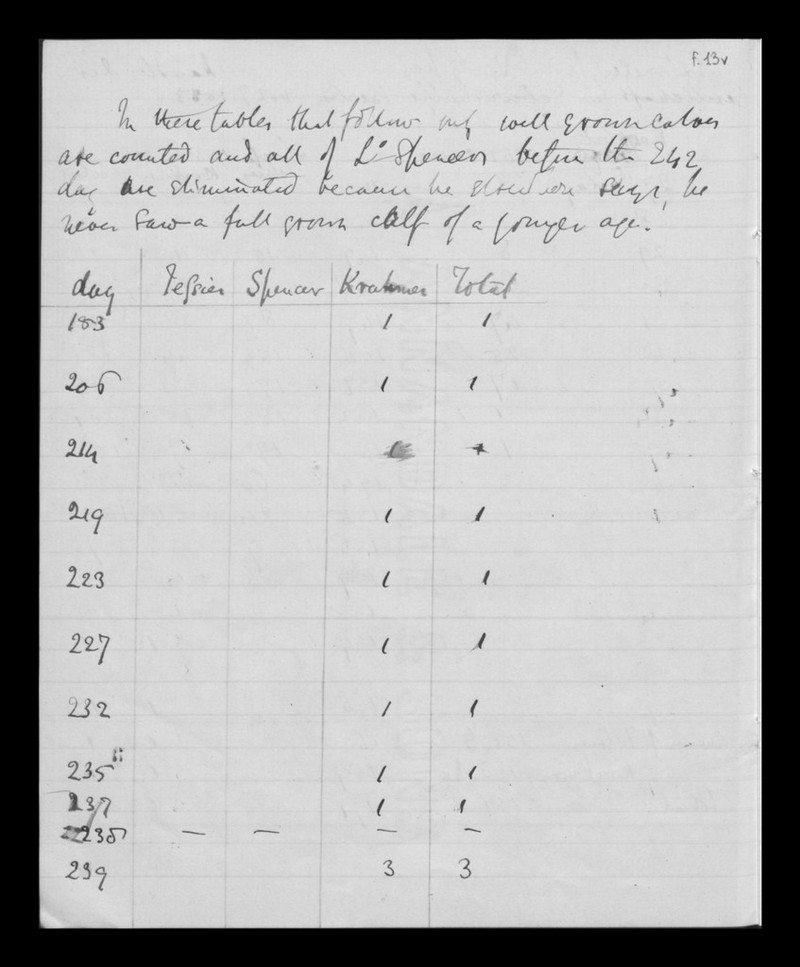 F.13v
In these tables that follow only well grown calves
are counted and all of Ld Spencers before the 242
day are eliminated because he says, he
never saw a full grown calf of a younger age.
day Tessier Spencer Krahmer Total
183 1 1
206 1 1
214 1
219 1 1
223 1 1
227 1 1
232 1 1
235 1 1
237 1 1
238 — — — —
239 3 3